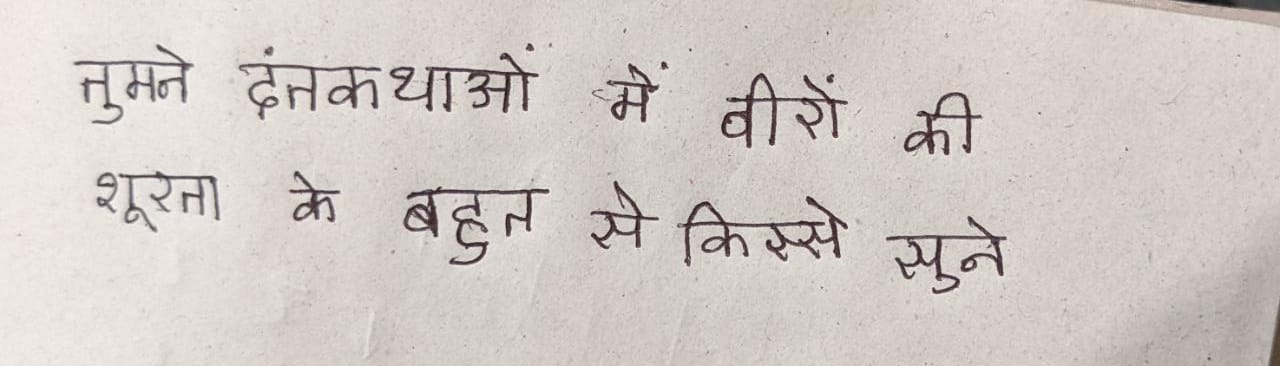 तुमने दंतकथाओं में वीरों की
शूरता के बहुत से किस्से सुने